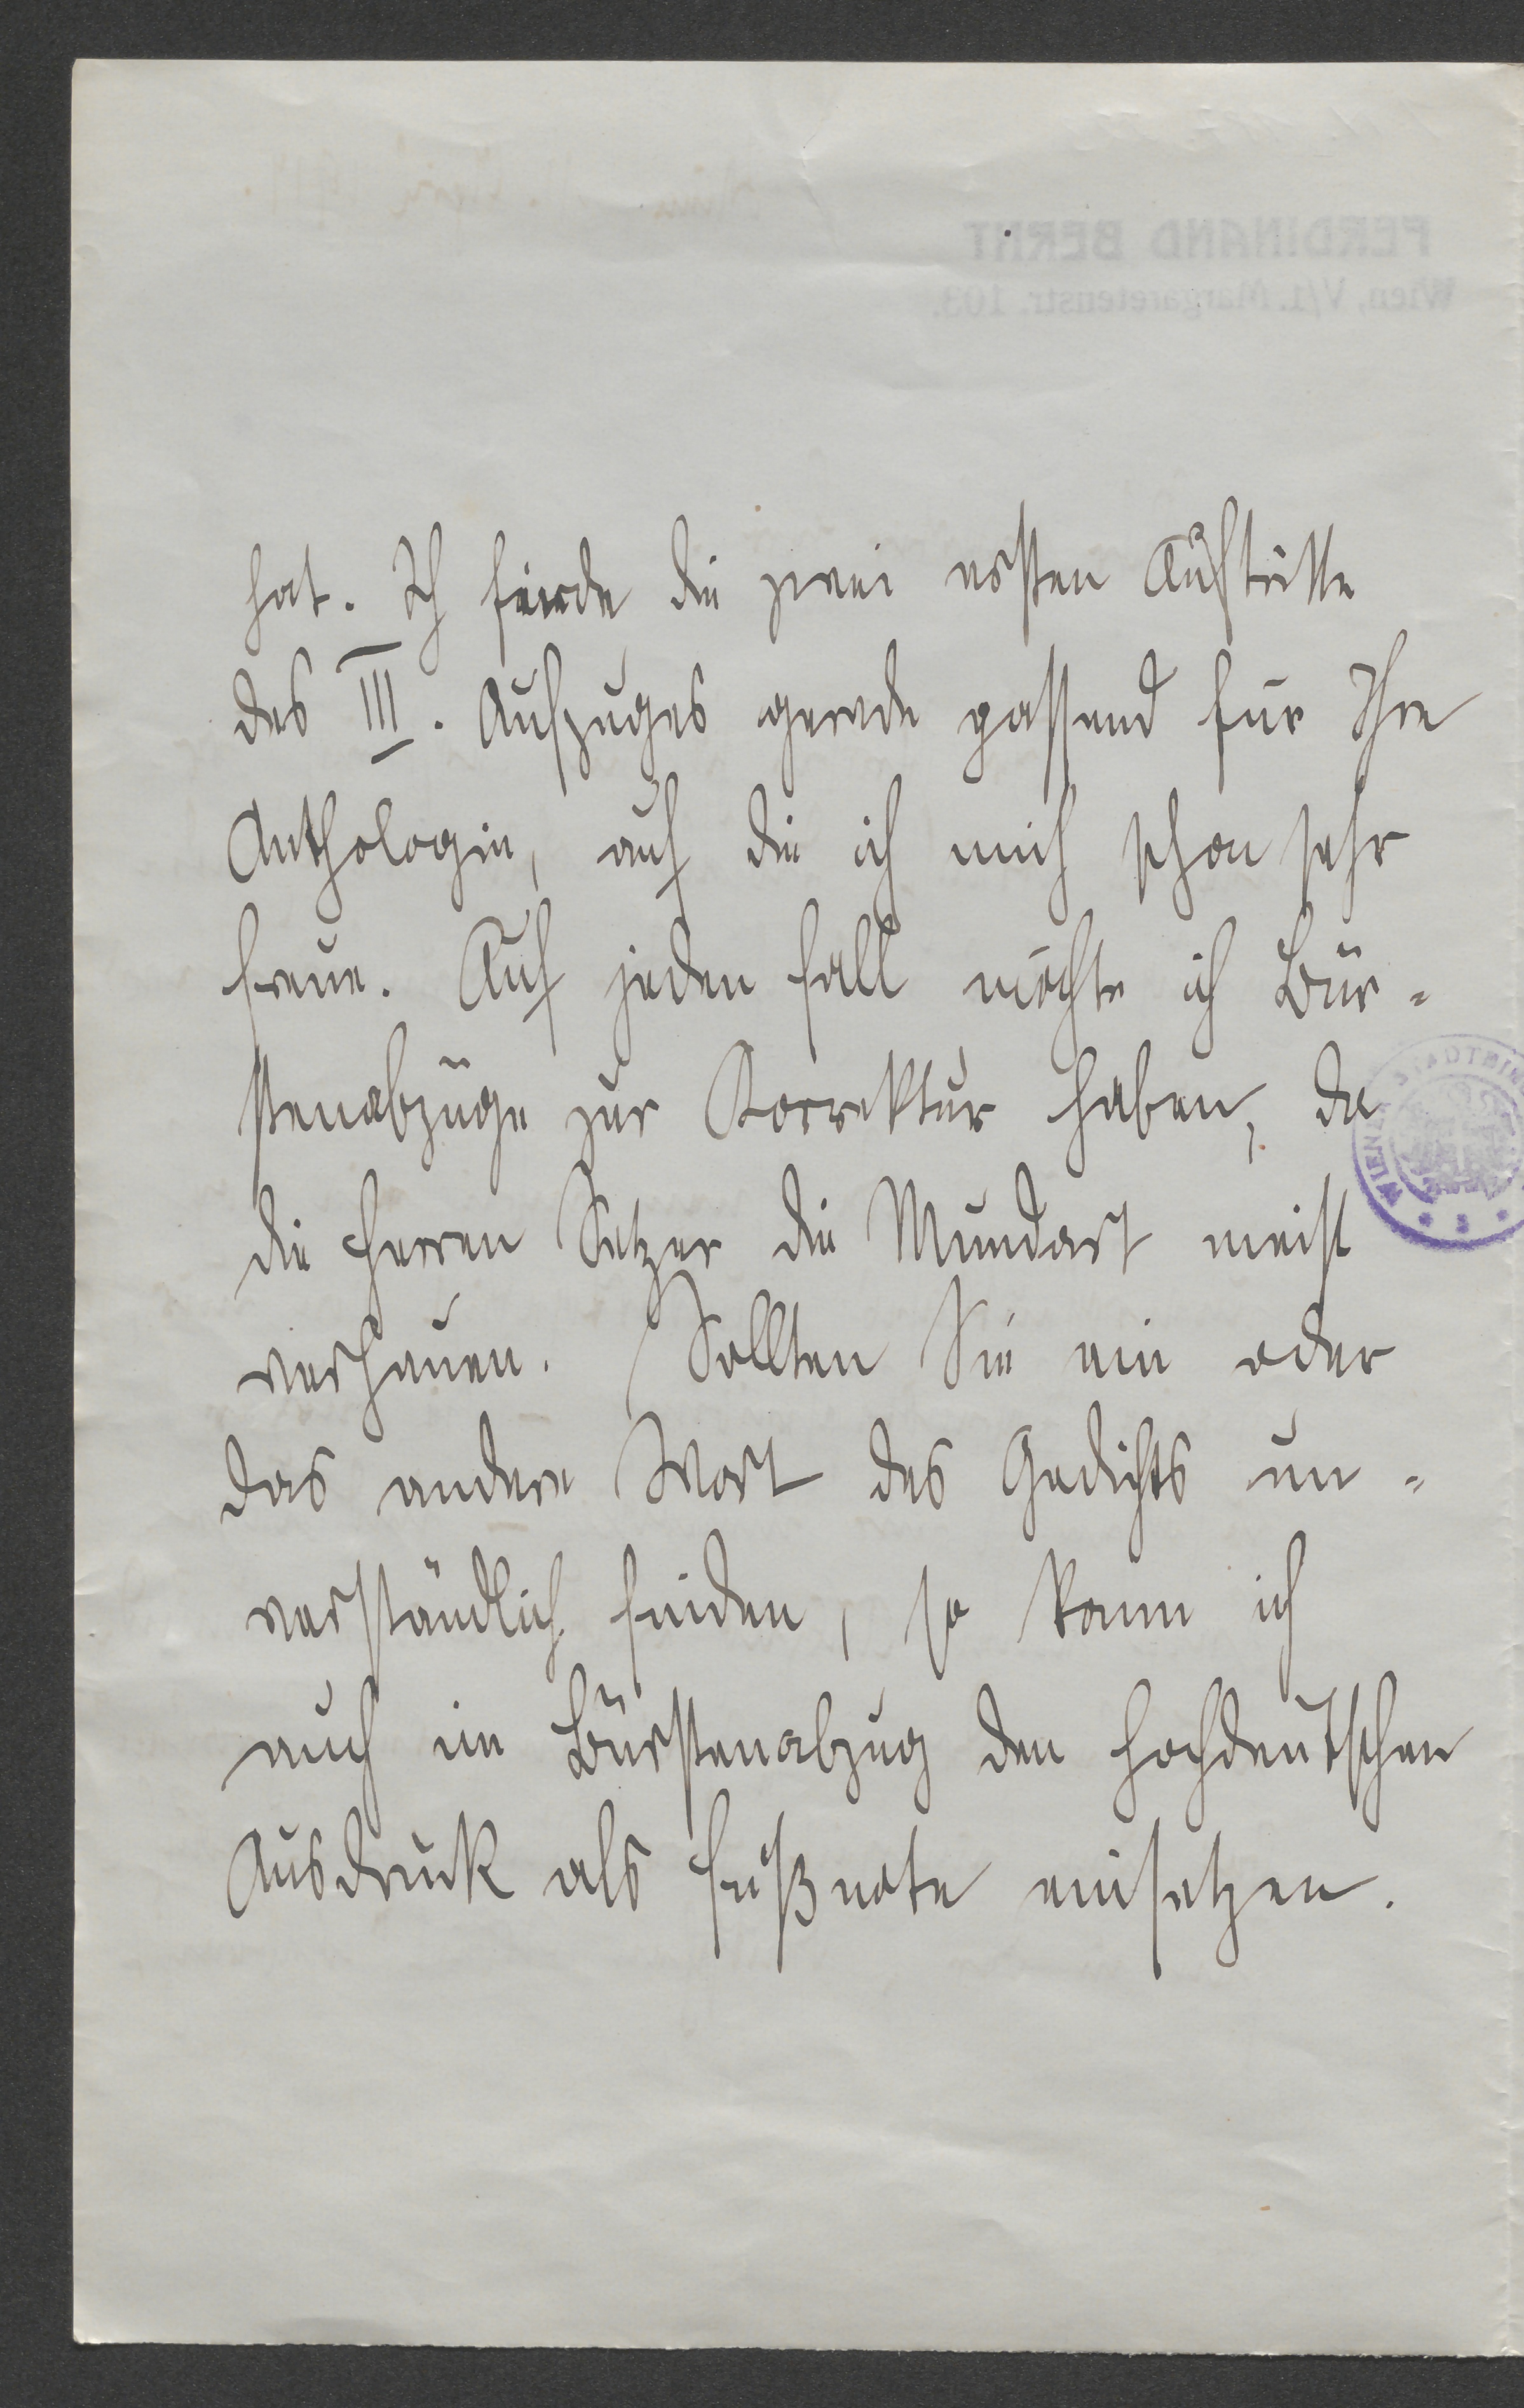 hat. Ich finde die zwei ersten Auftritte
des III. Aufzuges gerade passend für Ihre
Anthologie, auf die ich mich schon sehr
freue. Auf jeden Fall möchte ich Bür-
stenabzüge zur Korrektur haben, da
die Herren Setzer die Mundart meist
verhauen. Sollten Sie ein oder
das andere Wort des Gedichts un-
verständlich finden, so kann ich
auch im Bürstenabzug den hochdeutschen
Ausdruck als Fußnote einsetzen.
FERDINAND BERNT
Wien, V/1. Margaretenstr. 103.